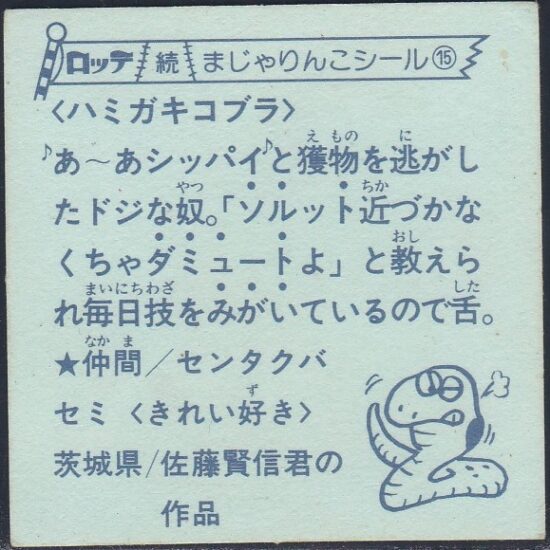 ロッテ 続 まじゃりんこシール⑮
〈ハミガキコブラ〉
♪あ〜あシッパイ♪と獲物を逃がし
たドジな奴。「ソルット近づかな
くちゃダミュートよ」と教えら
れ毎日技をみがいているので舌。
★仲間／センタクバ
セミ〈きれい好き〉
茨城県/佐藤賢信君の
作品